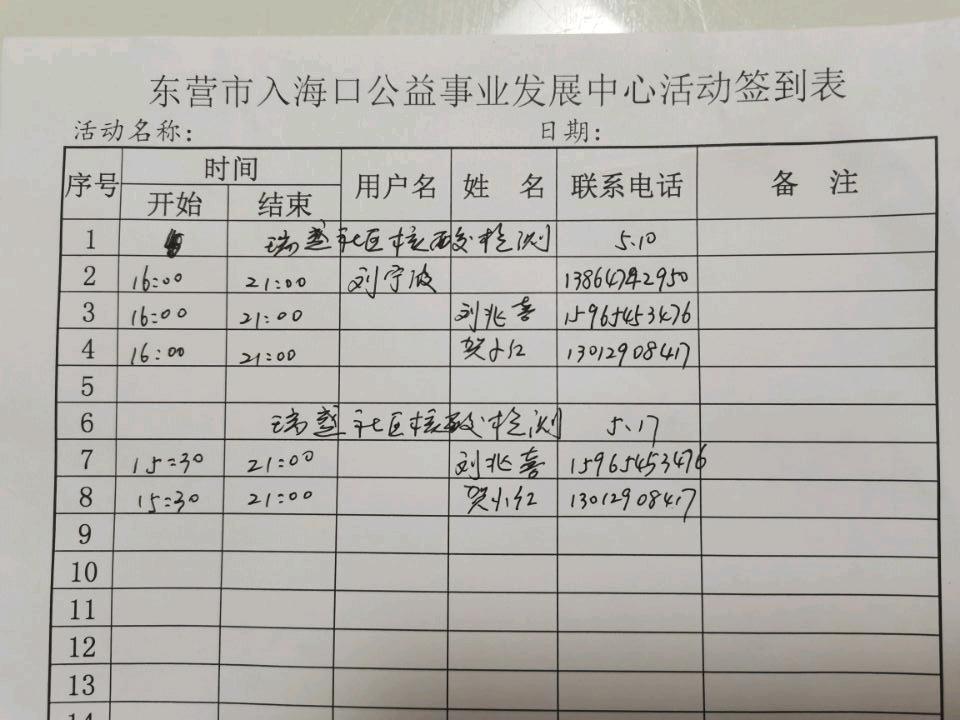 东营市入海口公益事业发展中心活动签到表
活动名称: 日期:
序号 时间 用户名 姓 名 联系电话 备 注
开始 结束
1 社区核酸检测 5.10
2 16:00 21:00 刘宁波 13864742950
3 16:00 21:00 刘兆喜 15965453476
4 16:00 21:00 贺小红 13012908417
5
6 社区核酸检测 5.17
7 15:30 21:00 刘兆喜 15965453476
8 15:30 21:00 贺小红 13012908417
9
10
11
12
13
14